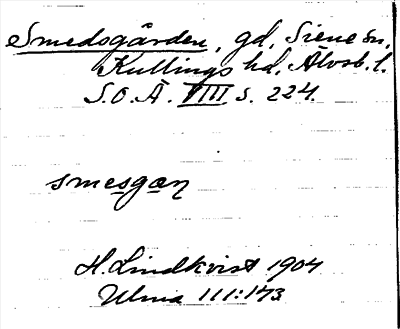 Smedsgården, gd, Siene sn,
Kullings hd. Älvsb. l.
S.O.Ä. VIII s. 224.
smesgan
H. Lindkvist 1904
Ulma 111:143